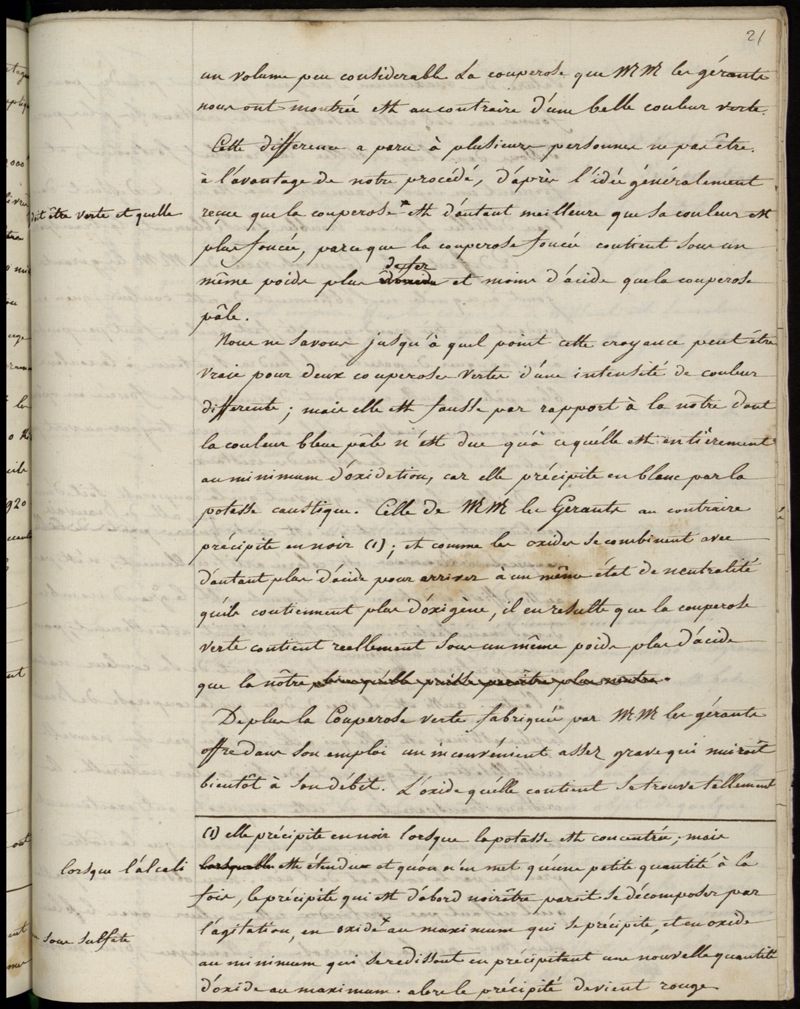 21
un volume peu considerable La couperose que MM les gérants
nous ont montrée est au contraire d'une belle couleur verte.
Cette difference a paru à plusieurs personnes ne pas être
à l'avantage de notre procédé, d'après l'idée généralement
doit être verte et quelle
reçue que la couperose est d'autant meilleure que sa couleur est
plus foncée, parce que la couperose foncée contient sous un
de fer
même poids plus et moins d'acide que la couperose
pâle.
Nous ne savons jusqu'à quel point cette croyance peut être
vraie pour deux couperoses vertes d'une intensité de couleur
differente ; mais elle est fausse par rapport à la nôtre dont
la couleur bleue pâle n'est due qu'à ce qu'elle est entièrement
au minimum d'oxidetion, car elle précipite en blanc par la
potasse caustique. Celle de MM les Gerants au contraire
précipite en noir (1) ; et comme les oxides se combinent avec
d'autant plus d'acide pour arriver à un même état de neutralité
qu'ils contiennent plus d'oxigène, il en resulte que la couperose
verte contient reellement sous un même poids plus d'acide
que la nôtre, bien qu'elle puisse paroître plus neutre.
De plus la Couperose verte fabriquée par MM les gérants
offre dans son emploi un inconvénient assez grave qui nuiroit
bientôt à son débit. L'oxide qu'elle contient se trouve tellement
(1) elle précipite en noir lorsque la potasse est concentrée ; mais
lorsque l'alcali
lorsquelle est étendue et qu'on n'en met qu'une petite quantité à la
fois, le précipité qui est d'abord noirâtre parait se décomposer par
sous sulfate
l'agitation, en oxide au maximum qui se précipite, et en oxide
au minimum qui se redissout en précipitant une nouvelle quantité
d'oxide au maximum. alors le précipité devient rouge